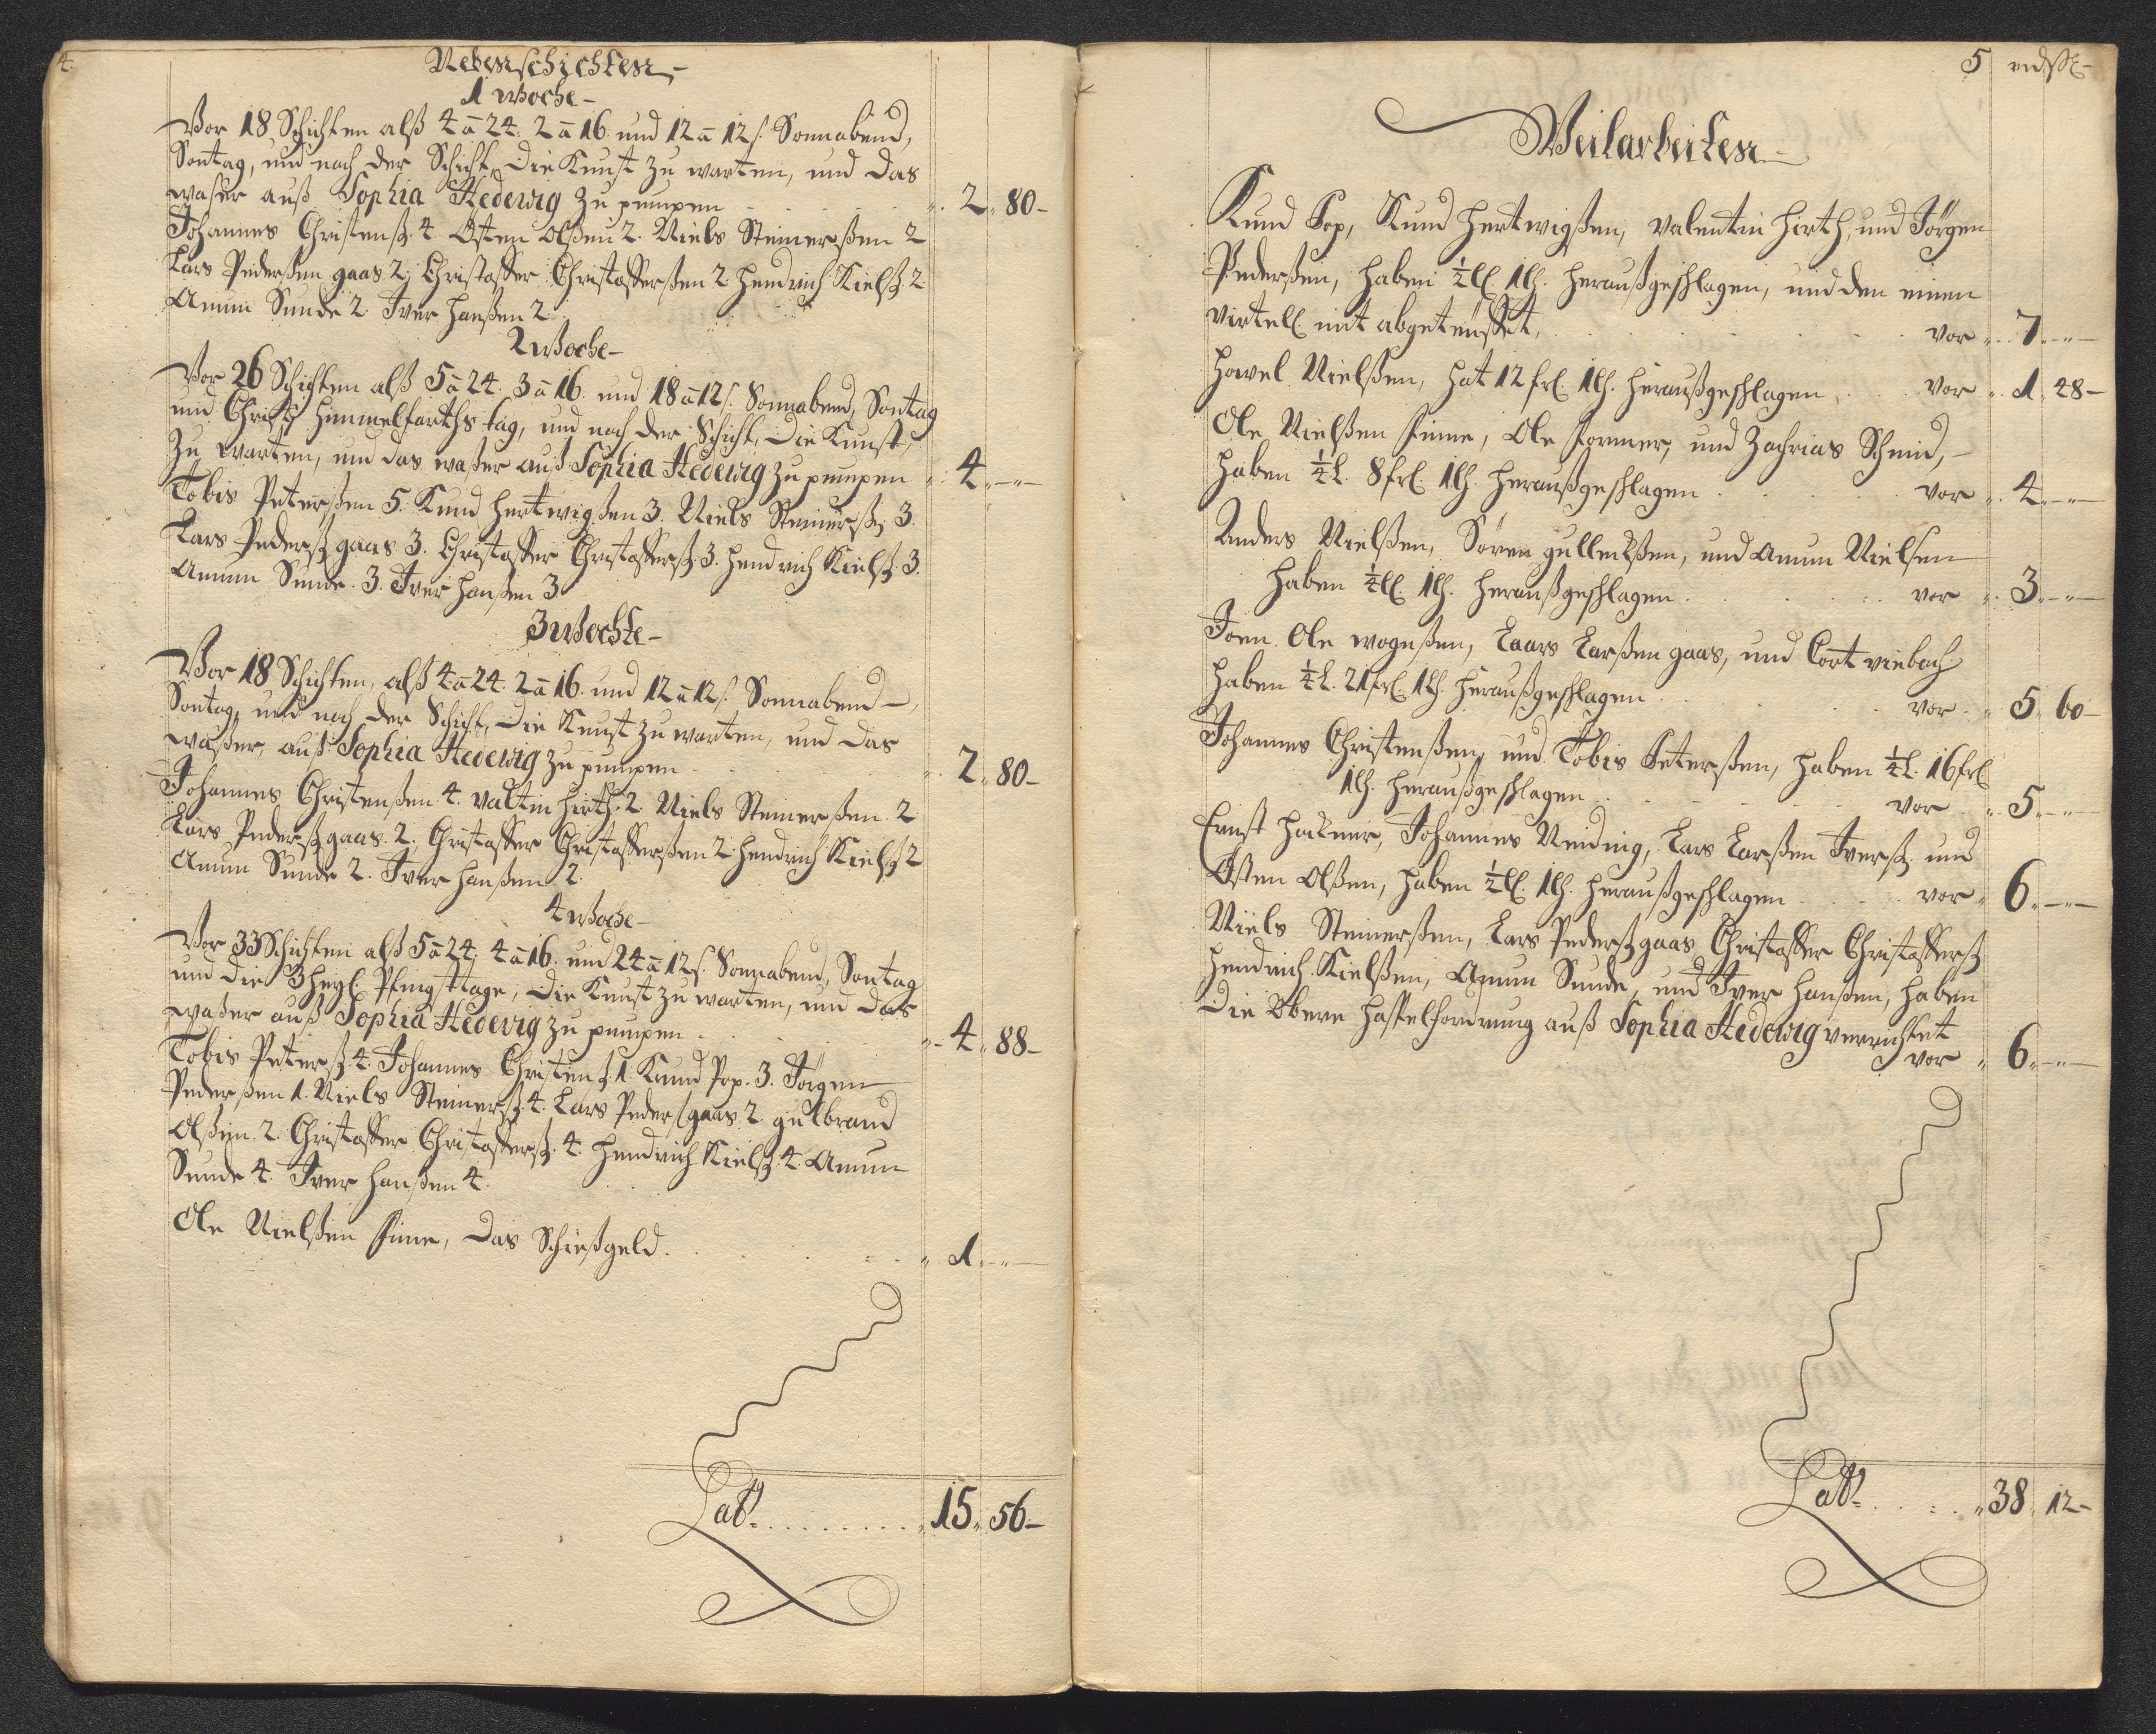 4.
Nebenschichten
1 Woche
Vor 18 Schichten alß 4 a 24. 2 a 16. und 12 a 12 s. Sonnabend,
Sontag, und nach der Schicht, die Kunst zu warten, und das
waßer auß Sophia Hedewig zu pumpen 2 80
Johannes Christenß. 4 Osten Olßen 2. Niels Steinerßen 2
Lars Pederßen gaas 2, Christoffer Christofferßen 2 Hendrich Kielß. 2
Amun Sunde 2. Iver Hanßen 2
2 Woche
Vor 26 Schichten alß 5 a 24. 3 a 16. und 18 a 12 s. Sonnabend, Sontag
und Christi Himmelfarths tag, und nach der Schicht, die Kunst
zu warten, und das waßer auß Sophia Hedewig zu pumpen 4
Tobis Peterßen 5. Knud Hertwigßen 3. Niels Steinerß. 3.
Lars Pederß. gaas 3. Christoffer Christofferß. 3. Hendrich Kielß. 3.
Amun Sunde. 3. Iver Hanßen 3
3 Woche
Vor 18 Schichten, alß 4 a 24. 2 a 16. und 12 a 12 s. Sonnabend
Sontag, und nach der Schicht, die Kunst zu warten, und das
waßer, auß Sophia Hedewig zu pumpen 2 80
Johannes Christenßen 4. Valtin Hirth. 2. Niels Steinerßen 2
Lars Pederß. gaas. 2. Christoffer Christofferßen 2. Hendrich Kielß. 2
Amun Sunde 2. Iver Hanßen 2.
4 Woche
Vor 33 Schichten alß 5 a 24. 4 a 16. und 24 a 12 s. Sonnabend, Sontag
und die 3 heyl. Pfingsttage, die Kunst zu warten, und das
waßer auß Sophia Hedewig zu pumpen 4 88
Tobis Peterß. 4. Johannes Christenß. 1. Knud Pop. 3. Jörgen
Pederßen 1. Niels Steinerß. 4. Lars Peders. gaas. 2. gulbrand
Olßen. 2. Christoffer Christofferß. 4. Hendrich Kielß. 4. Amun
Sunde 4. Iver Hanßen 4.
Ole Nielßen Finne, das Schießgeld. 1
Lat. 15 56
5
Weilarbeiten
Knud Pop, Knud Hertwigßen, Valentin Hirth, und Jörgen
Pederßen, haben ½ ll. 1 lh. heraußgeschlagen, und den einen
virtell mit abgeteuffet, vor 7
Havel Nielßen, hat 12 frl. 1 lh. heraußgeschlagen, vor 1 48
Ole Nielßen Finne, Ole Former, und Zachrias Schmid,
haben ¼ l. 8 frl. 1 lh. heraußgeschlagen vor 4
Anders Nielßen, Sören gulleckßen, und Amun Nielsen
haben ¼ ll. 1 lh. heraußgeschlagen vor 3
Joen Ole Mogenßen, Laars Larßen gaas, und Cort Viebach
haben ¼ l. 21 frl. 1 lh. heraußgeschlagen vor 5 60
Johannes Christenßen, und Tobis Peterßen, haben ¼ l. 16 frl.
1 lh. heraußgeschlagen vor 5
Ernst Johannes Neiding, Lars Larßen Iverß. und
Osten Olßen, haben ½ ll. 1 lh. heraußgeschlagen vor 6
Niels Steinerßen, Lars Pederß. gaas Christoffer Christofferß
Hendrich Kielßen, Amun Sunde, und Iver Hanßen, haben
die Obere Haspelforderung auß Sophia Hedewig verrichtet
vor 6
Lat. 38 12